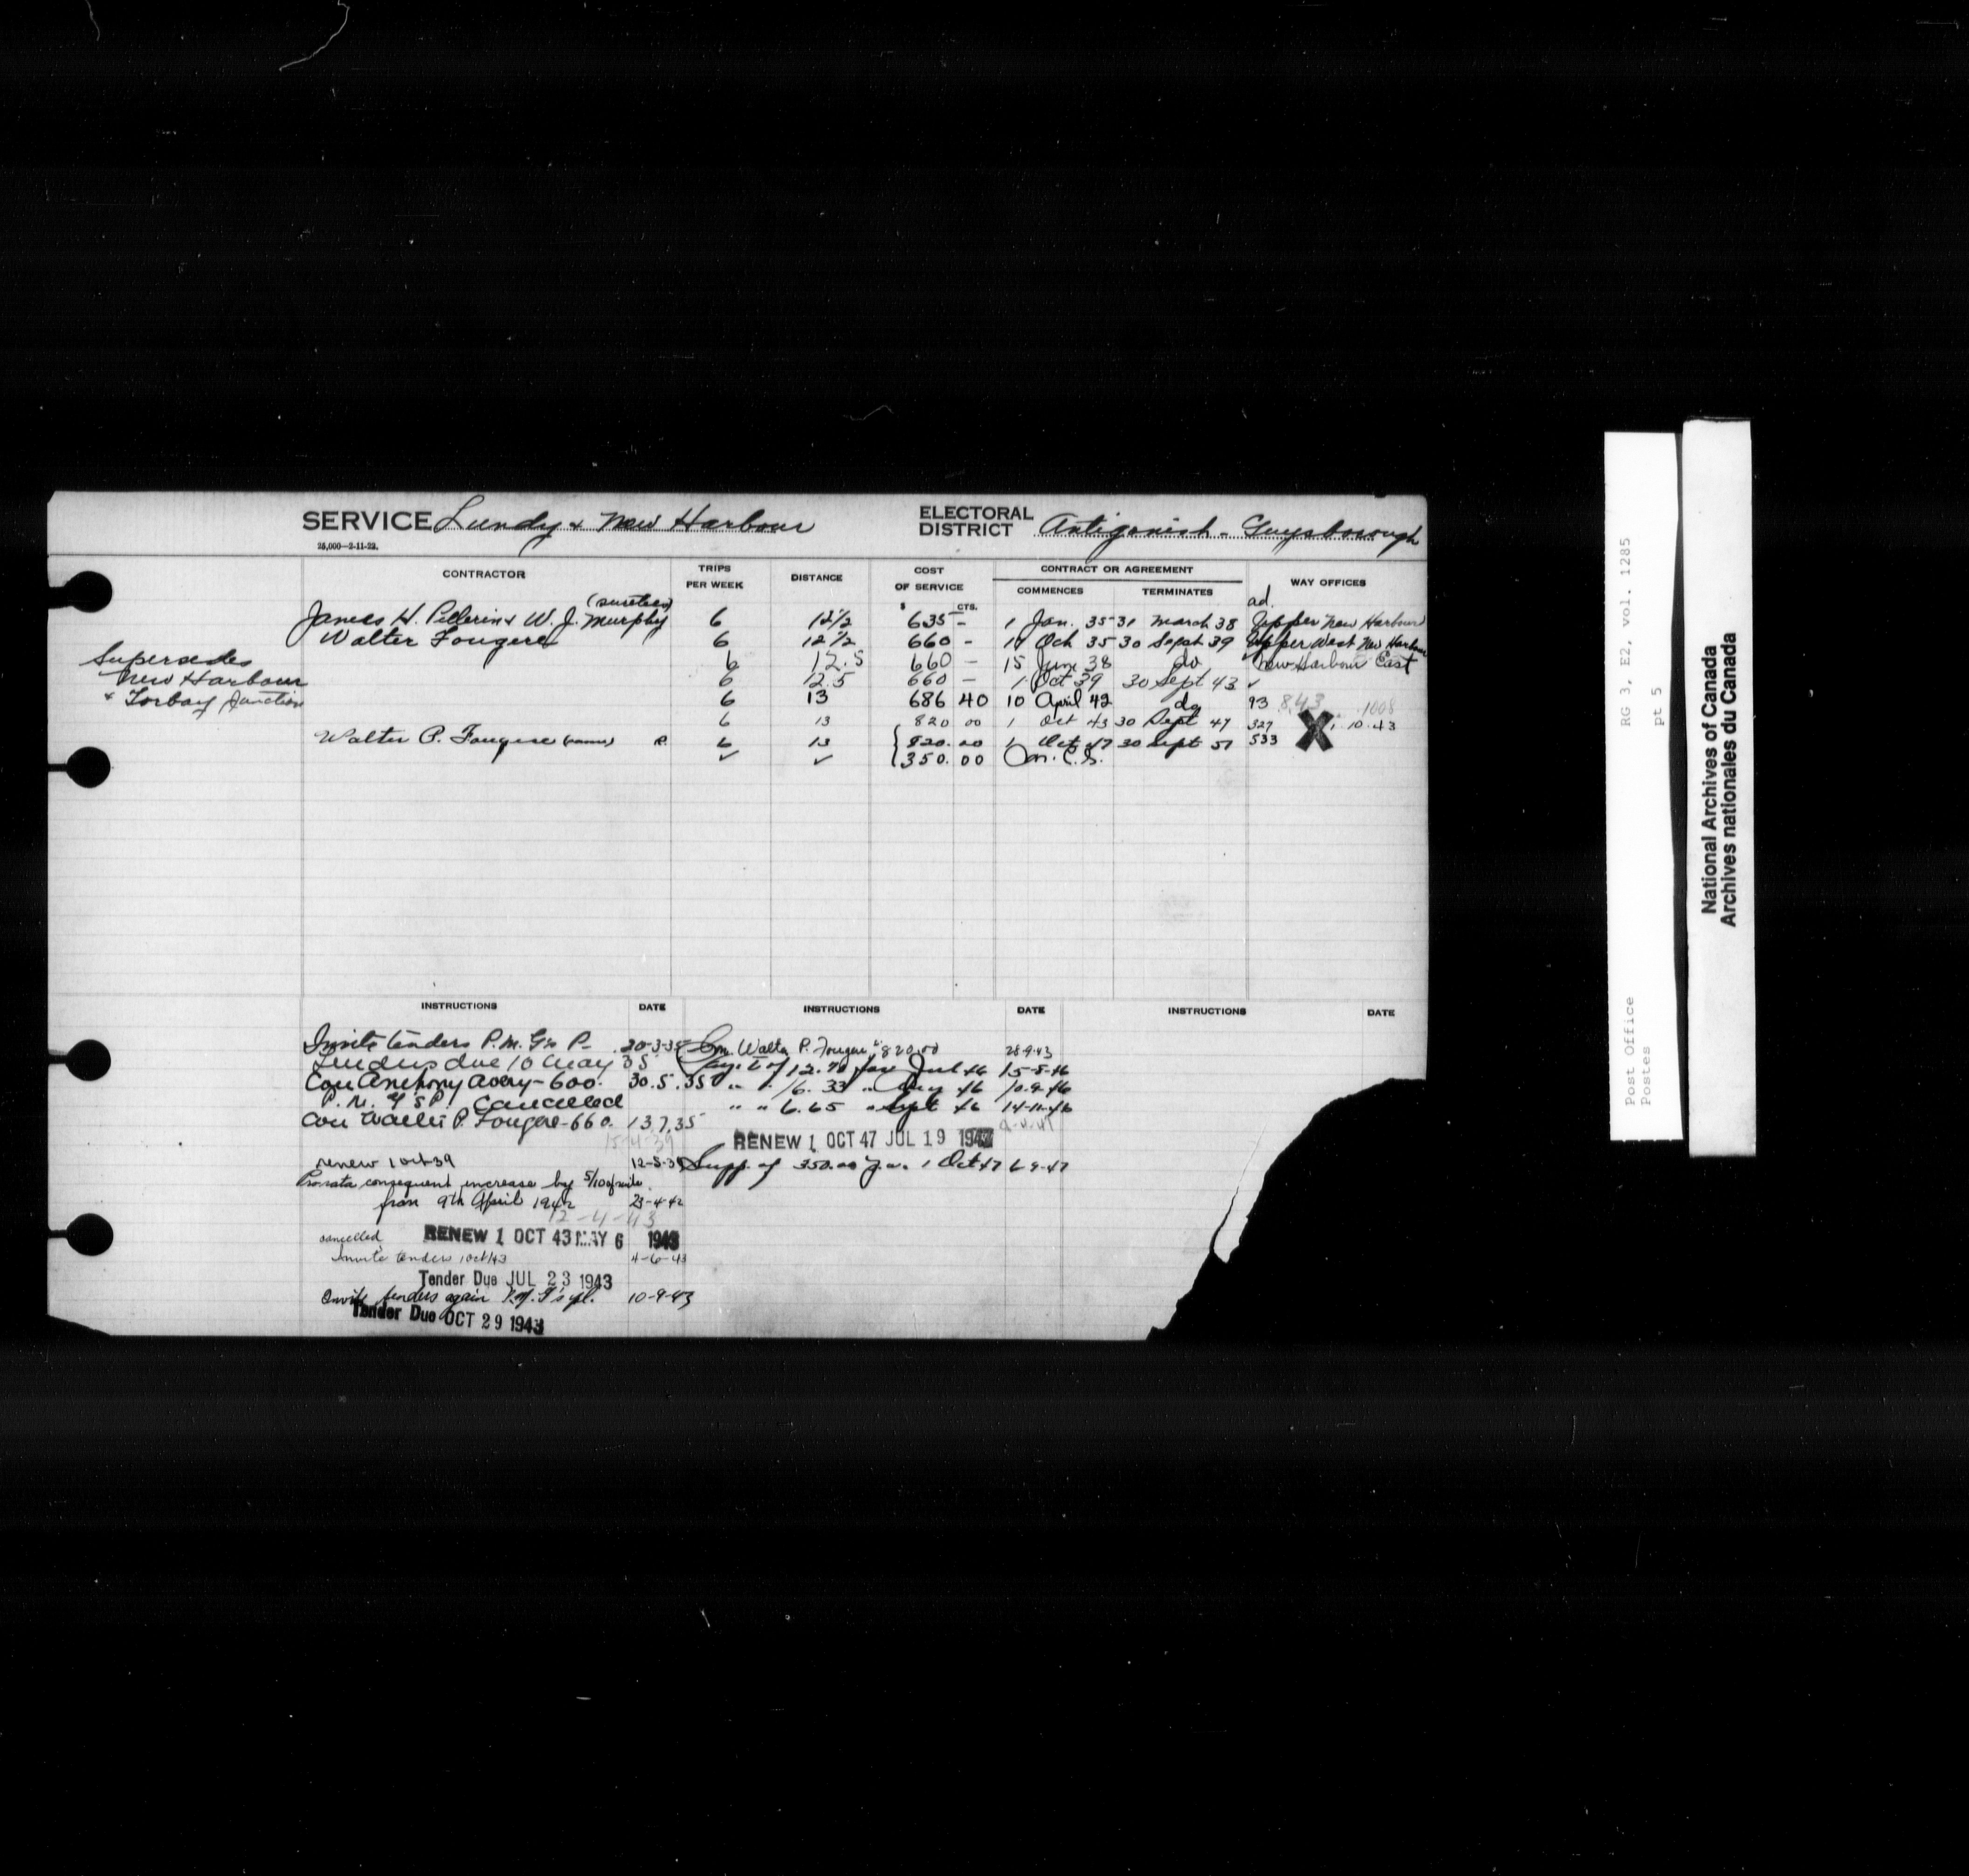 SERVICE Lundy & New Harbour ELECTORAL DISTRICT Antigonish - Guysborough
25,000—2-11-22.
CONTRACTOR TRIPS PER WEEK DISTANCE COST OF SERVICE CONTRACT OR AGREEMENT WAY OFFICES
COMMENCES TERMINATES
$ CTS.
(sureties) ad.
James H. Pellerin & W. J. Murphy 6 12 1/2 635 - 1 Jan. 35 31 March 38 Upper New Harbour
Walter Fougere 6 12 1/2 660 - 1 Oct 35 30 Sept 39 Upper West New Harbour
Supersedes 6 12.5 660 - 15 June 38 do New Harbour East
New Harbour 6 12.5 660 - 1 Oct 39 30 Sept 43 ✓
& Torbay Junction 6 13 686 40 10 April 42 do 93 843 1008
6 13 820 00 1 Oct 43 30 Sept 47 327 X 1. 10.43
Walter P. Fougere (name) R. 6 13 820.00 1 Oct 47 30 Sept 51 533
✓ ✓ 350.00 On. C.S.
INSTRUCTIONS DATE INSTRUCTIONS DATE INSTRUCTIONS DATE
Invite tenders P.M. G's P- 20-3-35
Tenders due 10 May 35
Con Anthony Avery - 600. 30.5.35
P.M. G's P. Cancelled
Con Walter P. Fougere - 660. 13.7.35
15-4-39
renew 1 Oct 39 12-5-39
Pro rata consequent increase by 5/10 of mile
from 9th April 1942 23-4-42
12-4-43
cancelled RENEW 1 OCT 43 MAY 6 1943
Invite tenders 1 Oct 43 4-6-43
Tender Due JUL 23 1943
Invite tenders again P.M. G's pl. 10-9-43
Tender Due OCT 29 1943
Con. Walter P. Fougere "820.00 28-9-43
12.70 for July 46 15-8-46
" " 16.33 " Aug 46 10.9-46
" " 6.65 " Sept 46 14-11-46
RENEW 1 OCT 47 JUL 19 1947
Supp. of 350.00 p.a. 1 Oct 47 6 9-47
Post Office RG 3, E2, vol. 1285
Postes pt 5
National Archives of Canada
Archives nationales du Canada